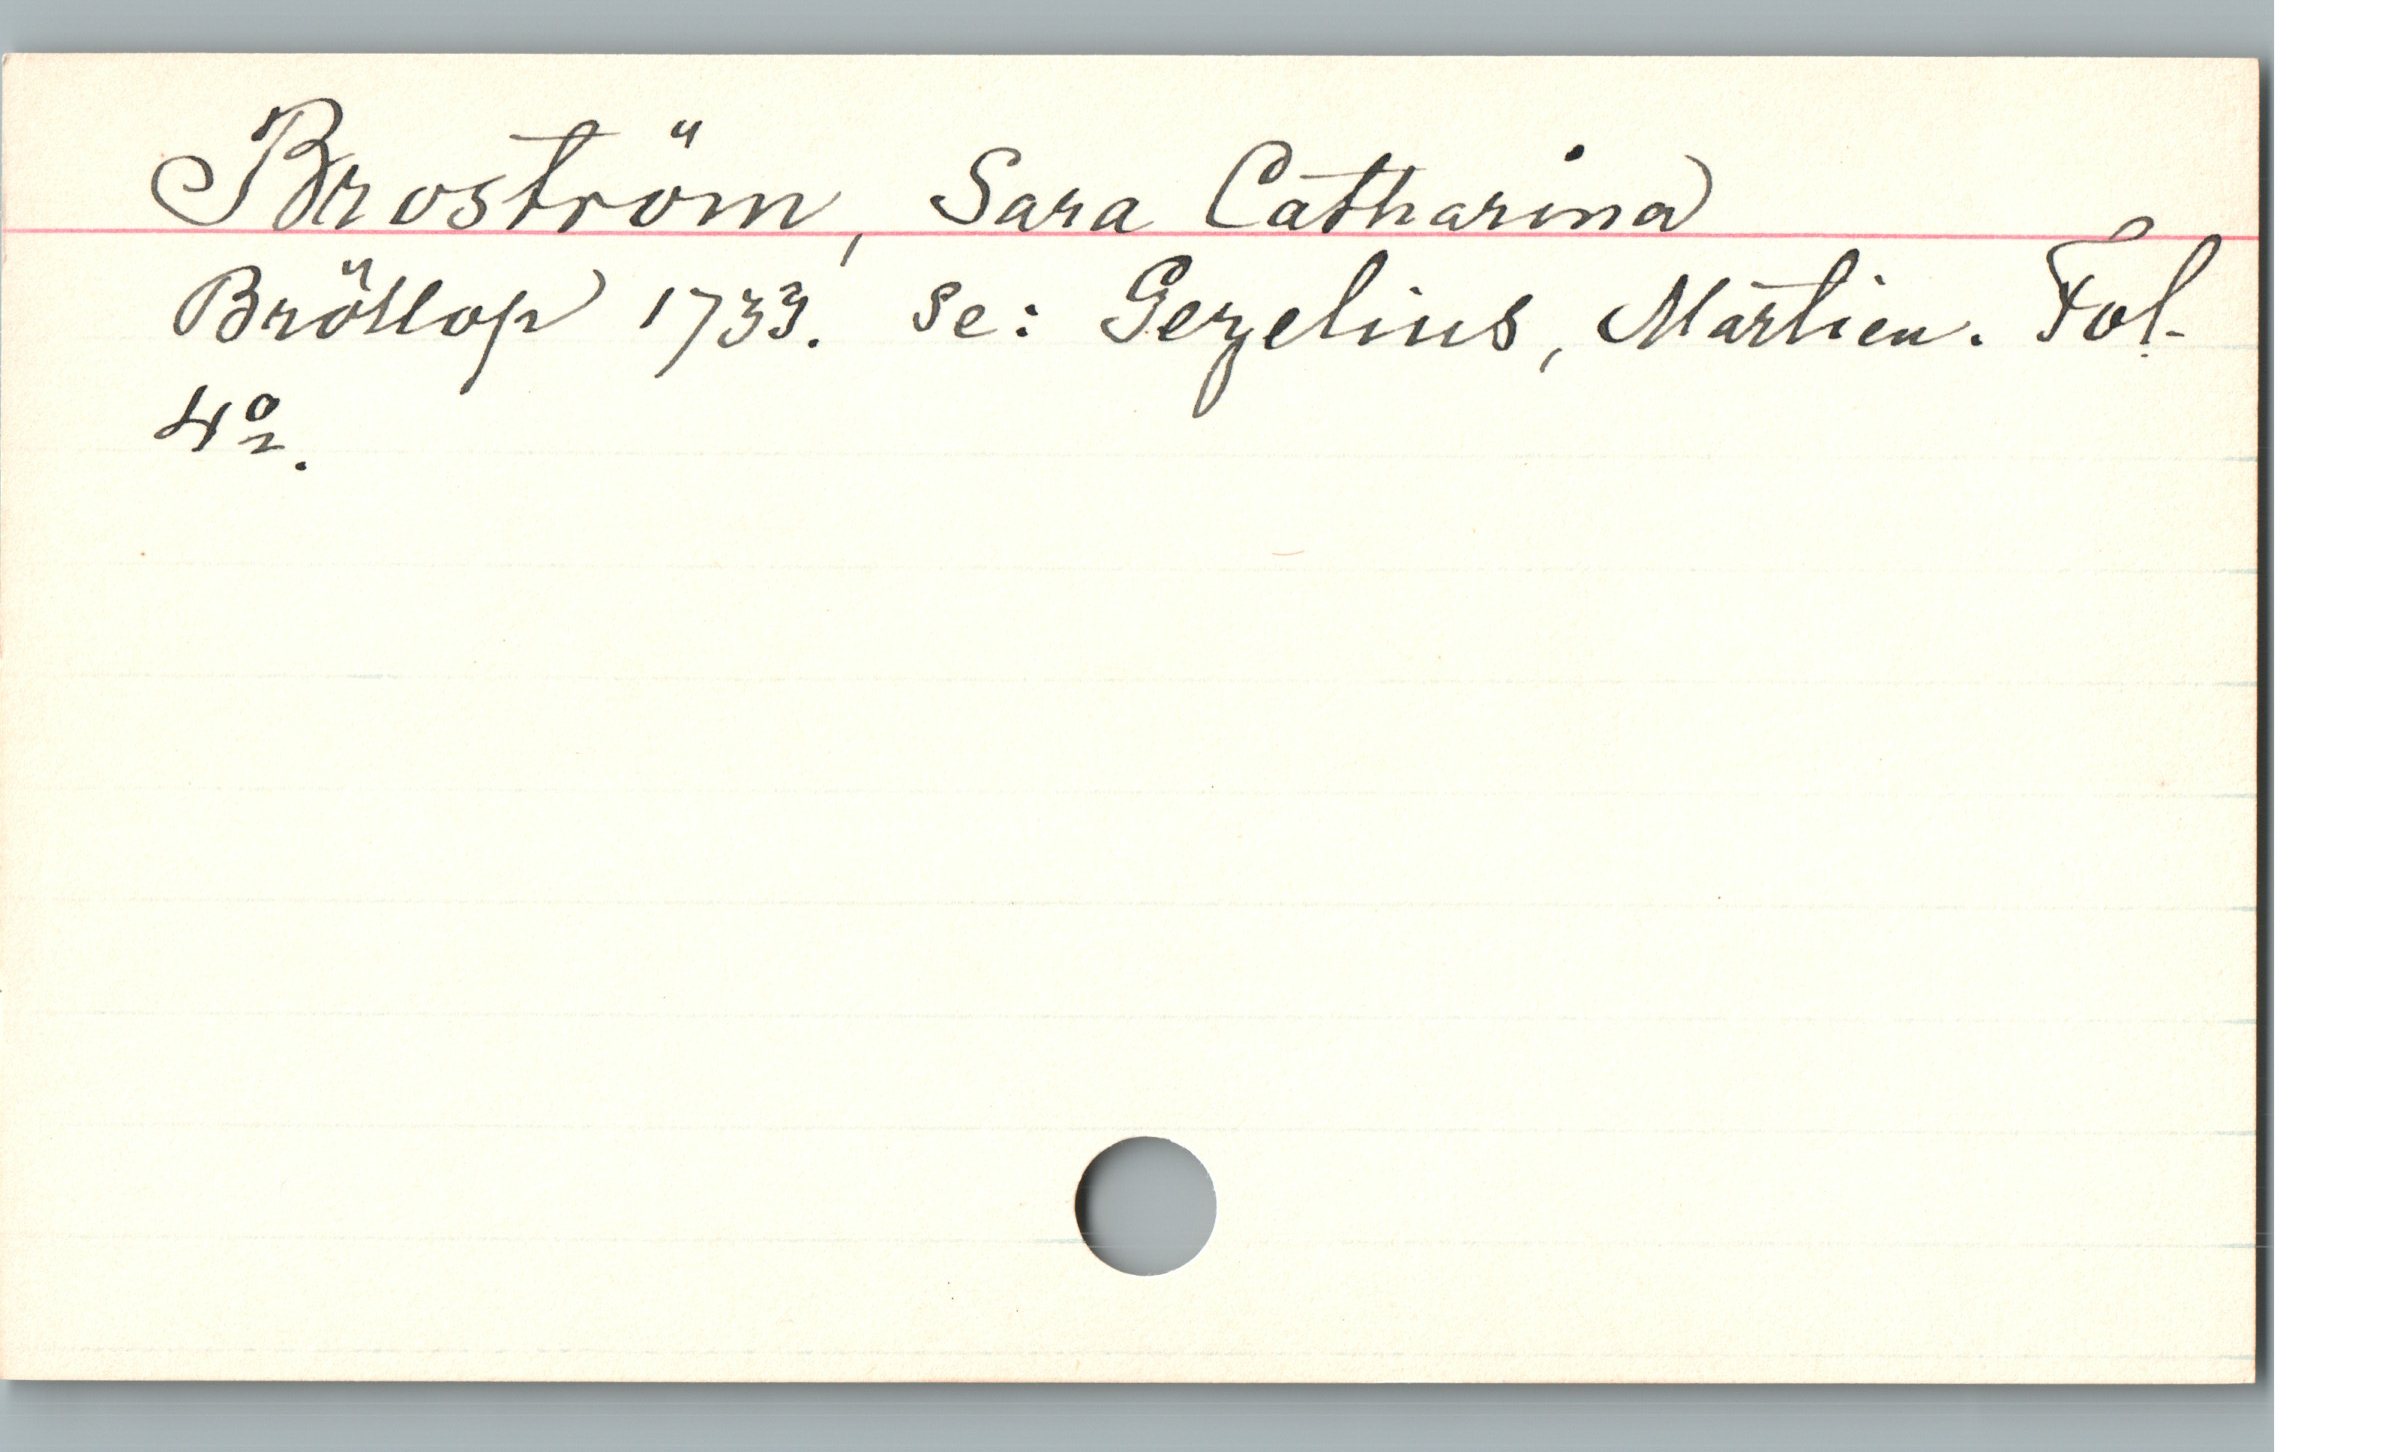 Broström, Sara Catharina
Bröllop 1733. se: Gezelius, Martin. Fol.
4o.